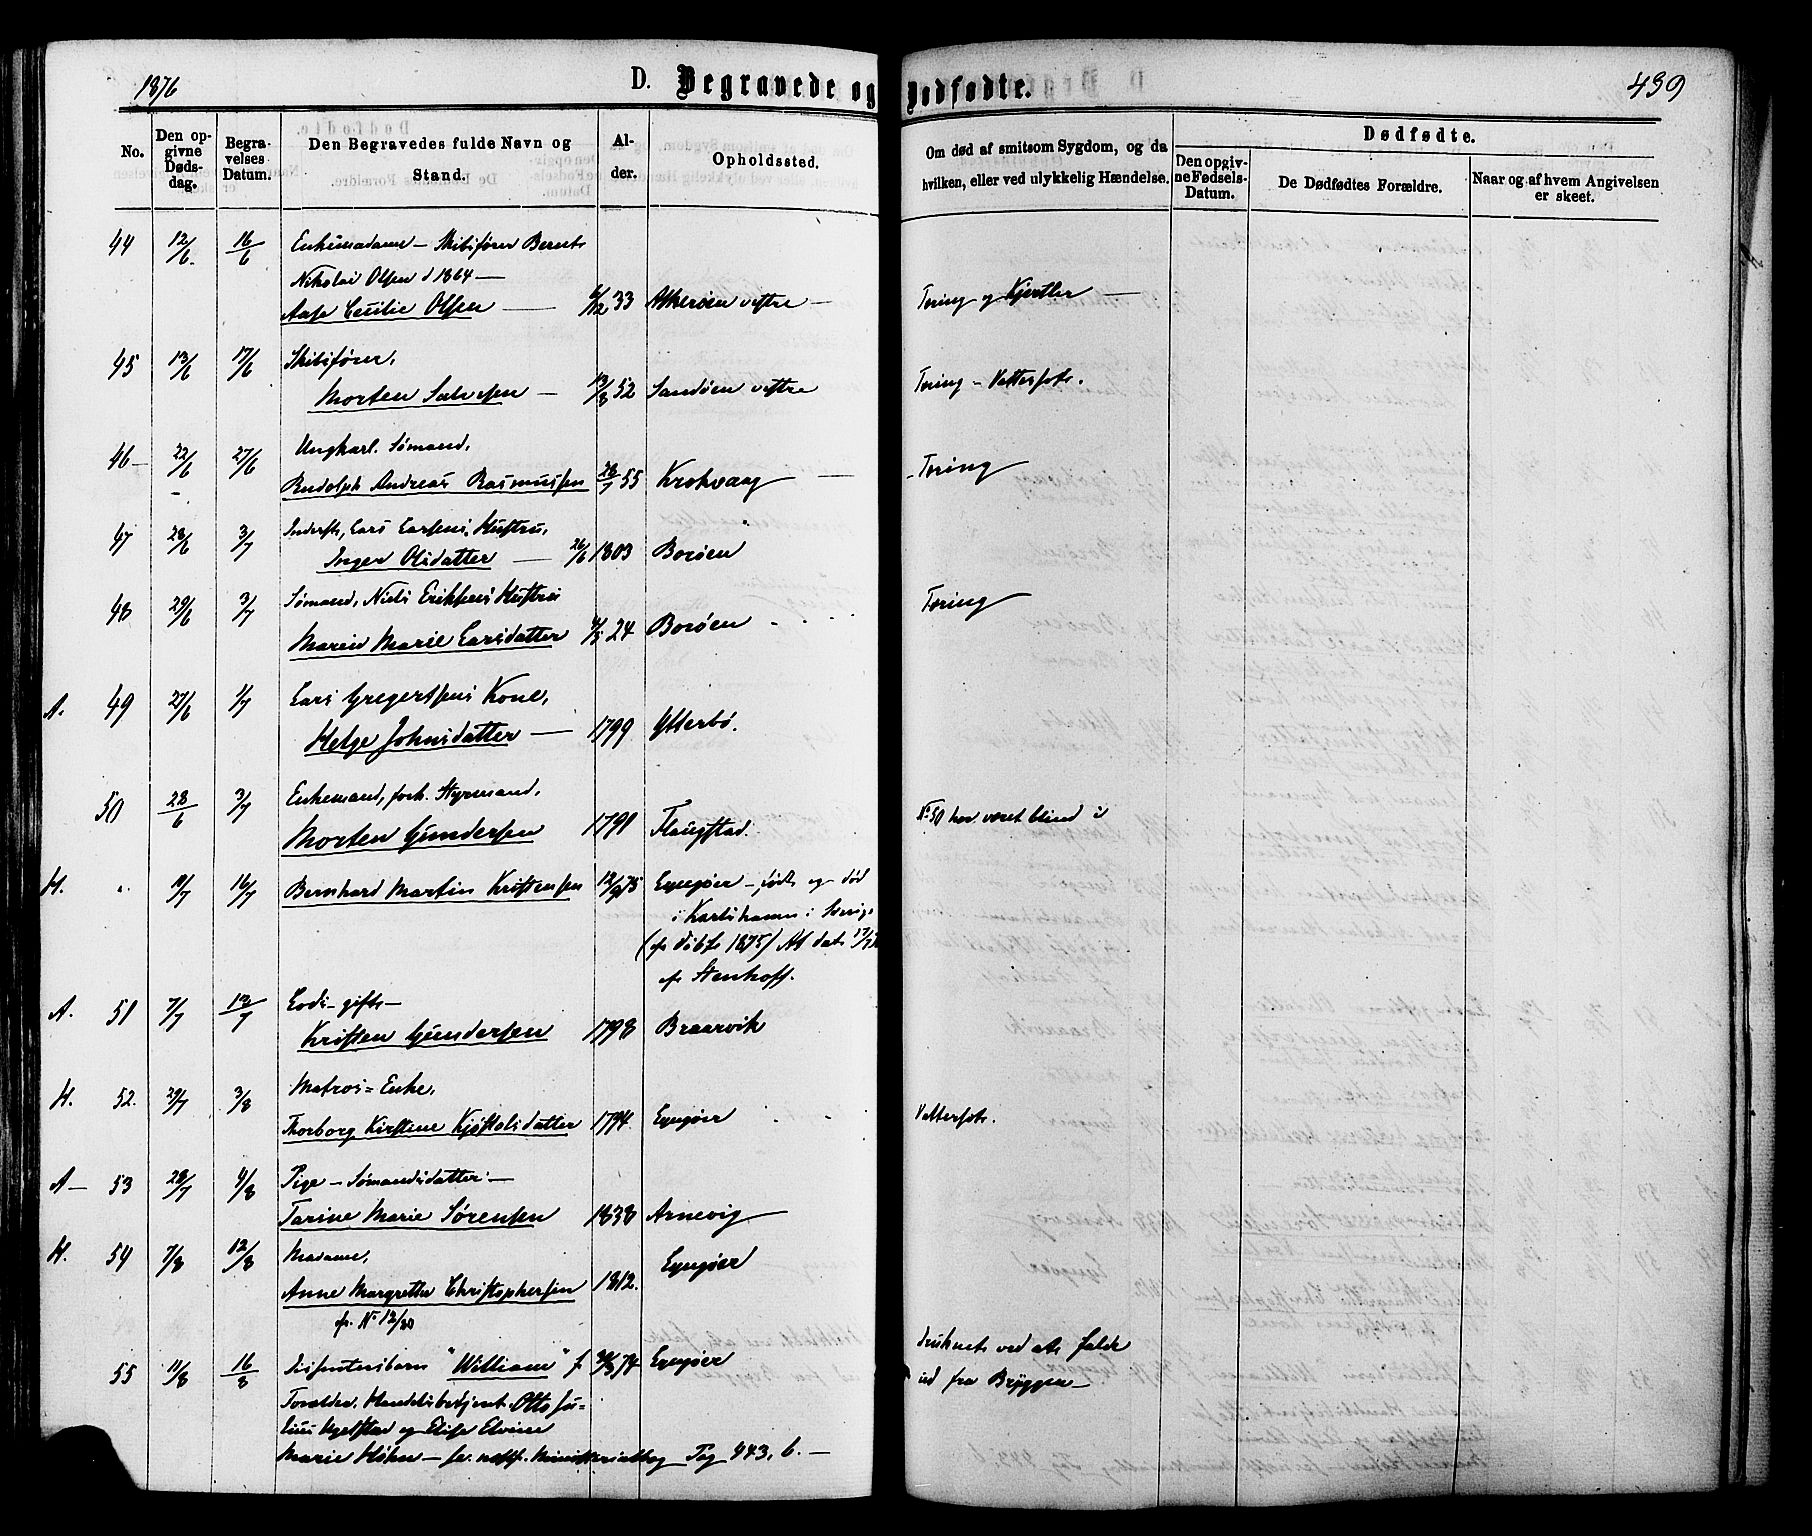 1876
D. Begravede og Dødfødte.
439
No.
Den opgivne Dødsdag.
Begravelses Datum.
Den Begravedes fulde Navn og Stand.
Alder.
Opholdssted.
Om død af smitsom Sygdom, og da hvilken, eller ved ulykkelig Hændelse.
Dødfødte.
Den opgivne Fødsels-Datum.
De Dødfødtes Forældre.
Naar og af hvem Angivelsen er skeet.
44 12/6. 16/6 Enkemadame – Skibsfører Bernt
Nikolai Olsen d 1864 —
Aase Cecilie Olsen — 6/12 33 Askerøen vestre — Tæring og Kjertler —
45 13/6 17/6 Skibsfører,
Morten Salvesen — 13/8 52 Sandøen vestre Tæring – Vattersot.
46 – 22/6 27/6 Ungkarl. Sømand,
Rudolph Andreas Rasmussen 28/7 55 Krokvaag — Tæring
47 28/6 3/7 Inderst, Lars Larsens Hustru,
Inger Olsdatter — 26/6 1803 Borøen
48 29/6 3/7 Sømand, Niels Eriksens Hustru
Maren Marie Larsdatter 4/5 24 Borøen Tæring
A. 49 27/6 1/7 Lars Gregertsens Kone,
Helge Johnsdatter — 1799 Ytterbø.
50 28/6 3/7 Enkemand, forh. Styrmand,
Morten Gundersen 1791 Flaugstad. No 50 har været blind i
H. " 11/7 16/7 Bernhard Martin Kristensen 12/9 75 Lyngøer – født og død
i Karlshamn i Sverig
(cfr døbte 1875) Att dat 17/7
fr Stenhoff.
A. 51 7/7 12/7 Lods – gift –
Kristen Gundersen 1798 Braarvik
H. 52. 29/7 3/8 Matros = Enke,
Thorborg Kirstine Kjøstolsdatter 1794. Lyngøer Vattersot.
A – 53 28/7 4/8 Pige – Sømandsdatter –
Tarine Marie Sørensen 1838 Arnevig
H. 54 7/8 12/8 Madame,
Anne Margrethe Christophersen 1812. Lyngøer
fr. No 12/80
55 11/8 16/8 Dissenterbarn "William" f. 30/3 74 Lyngøer druknet ved at falde
ud fra Bryggen –
Forældre, Handelsbetjent Otto Ju=
lius Ugelstad og Elise Elvine
Marie Høhn – se nestf. Ministerialbog Pag 443, b. –